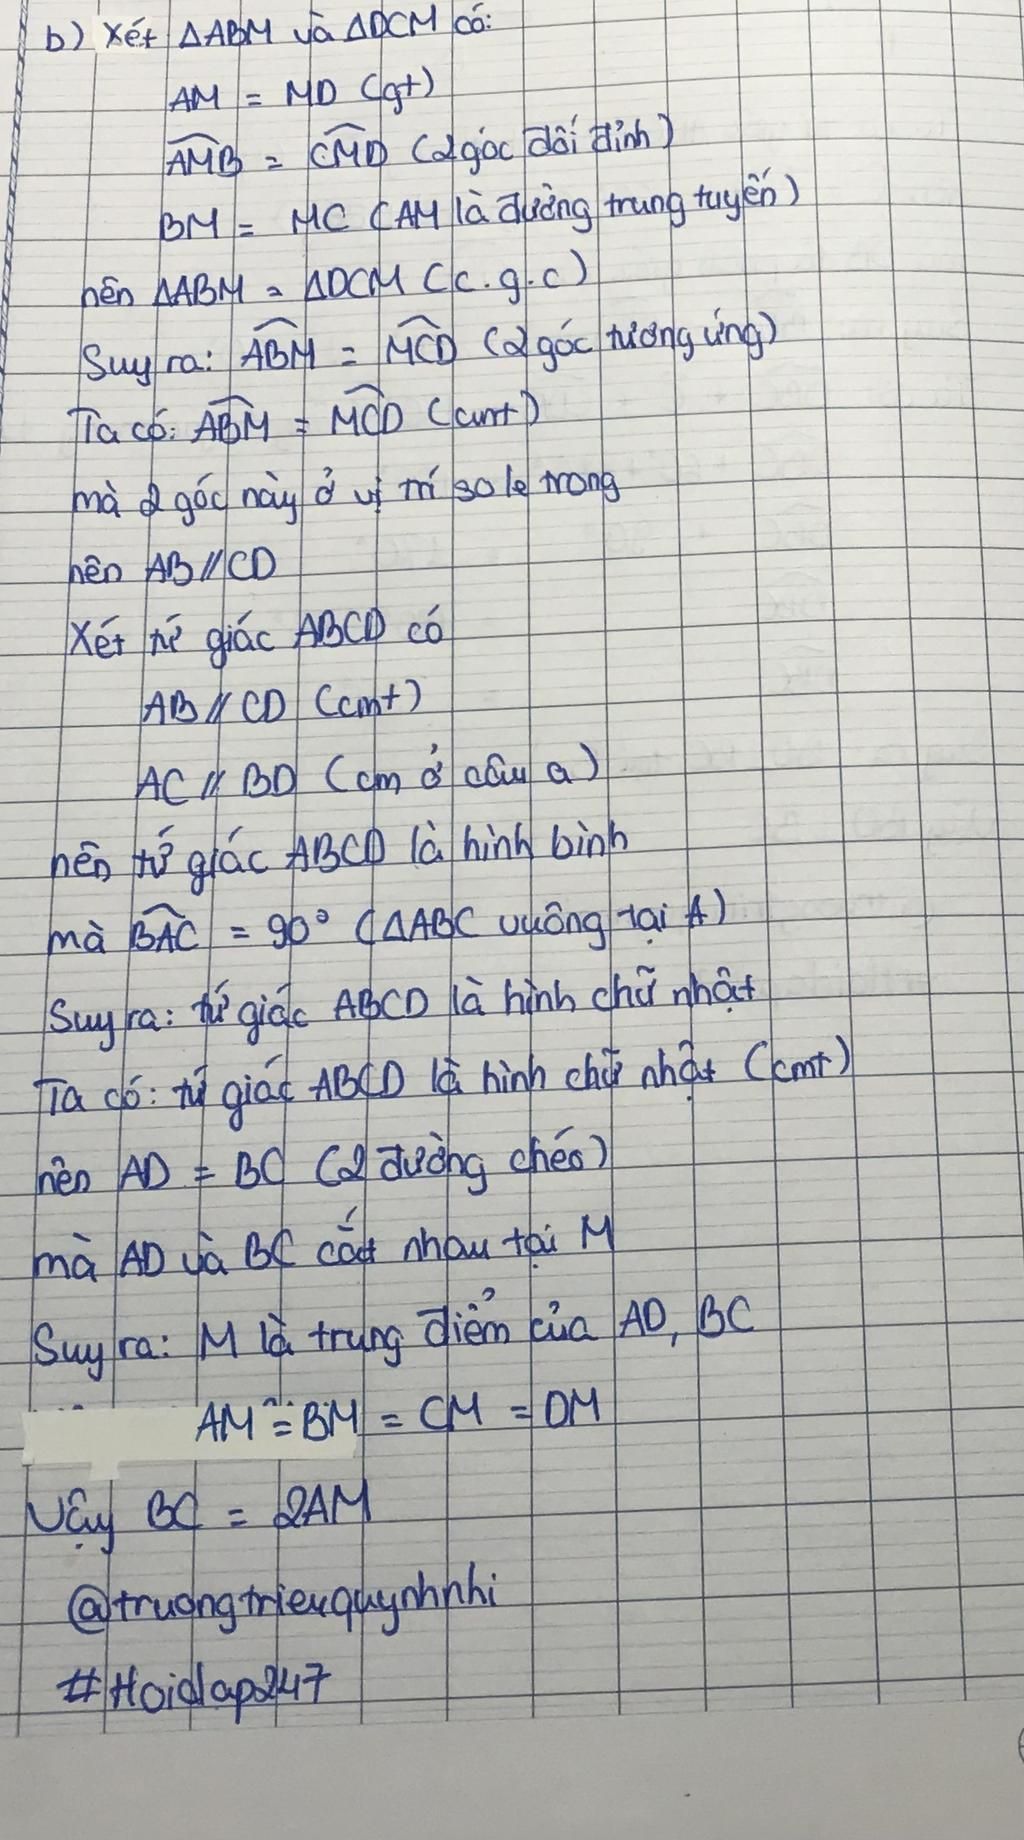 b) Xét ΔABM và ΔDCM có:
AM = MD (gt)
AMB = CMD (2 góc đối đỉnh)
BM = MC (AM là đường trung tuyến)
nên ΔABM = ΔDCM (c.g.c)
Suy ra: ABM = MCD (2 góc tương ứng)
Ta có: ABM = MCD (cmt)
mà 2 góc này ở vị trí so le trong
nên AB // CD
Xét tứ giác ABCD có
AB // CD (cmt)
AC // BD (cm ở câu a)
nên tứ giác ABCD là hình bình
mà BAC = 90° (ΔABC vuông tại A)
Suy ra: tứ giác ABCD là hình chữ nhật
Ta có: tứ giác ABCD là hình chữ nhật (cmt)
nên AD = BC (2 đường chéo)
mà AD và BC cắt nhau tại M
Suy ra: M là trung điểm của AD, BC
AM = BM = CM = DM
Vậy BC = 2AM
@truongtrieuquynhnhi
#Hoidap247